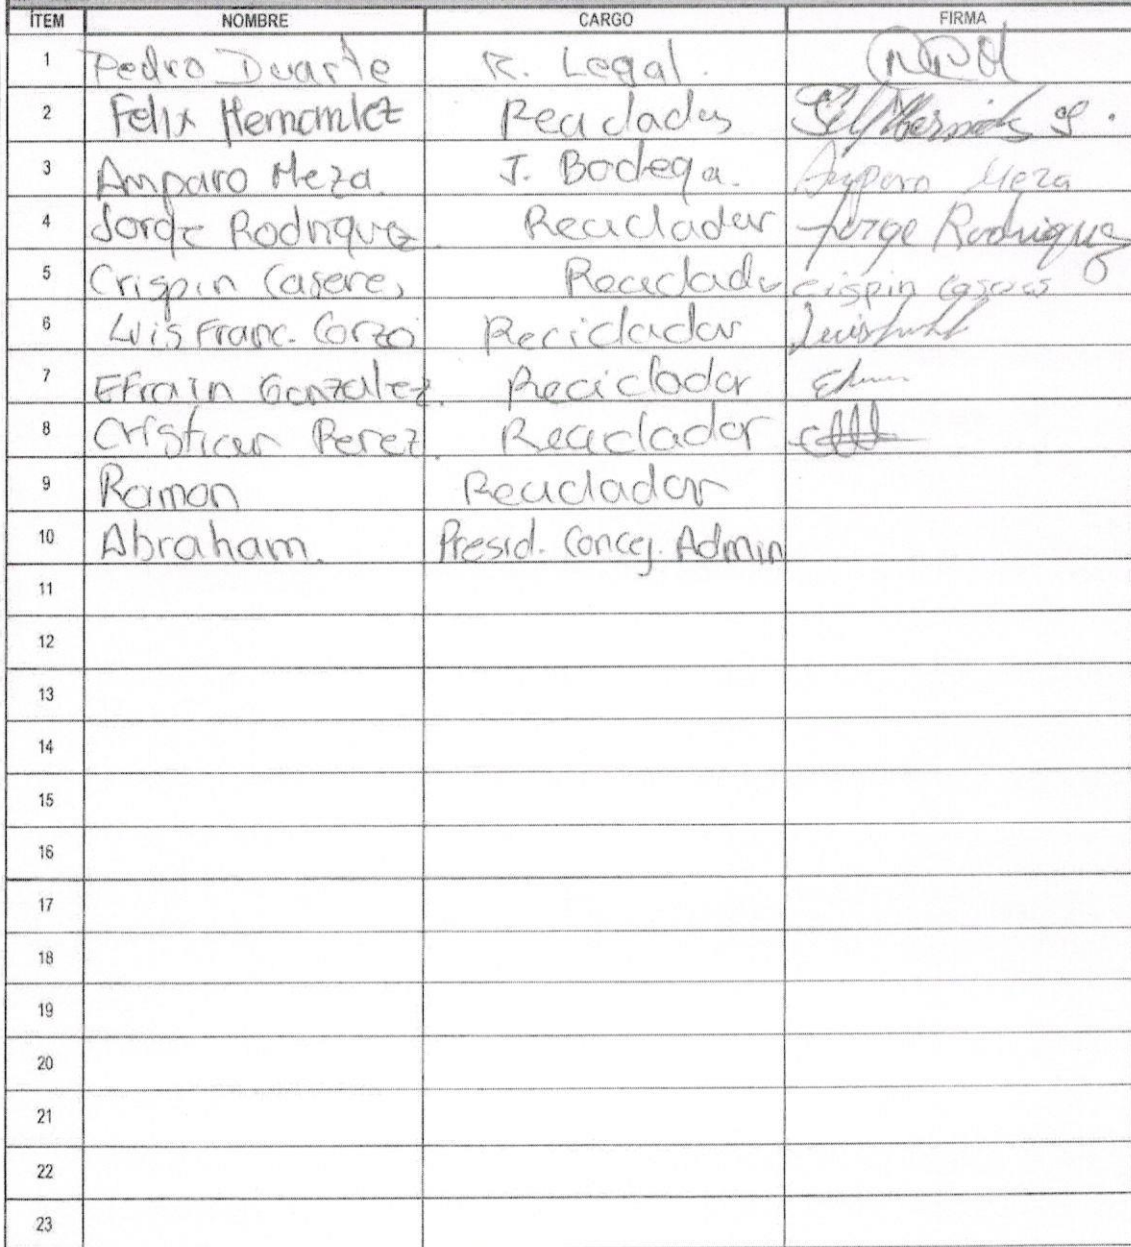 ÍTEM NOMBRE CARGO FIRMA
1 Pedro Duarte R. Legal.
2 Felix Hernandez Reciclador
3 Amparo Meza. J. Bodega. Amparo Meza
4 Jorge Rodriguez Reciclador Jorge Rodriguez
5 Crispin Caseres Reciclador crispin caseres
6 Luis Franc. Corzo Reciclador
7 Efrain Gonzalez. Reciclador
8 Cristian Perez. Reciclador
9 Ramon Reciclador
10 Abraham. Presid. Concej. Admin
11
12
13
14
15
16
17
18
19
20
21
22
23